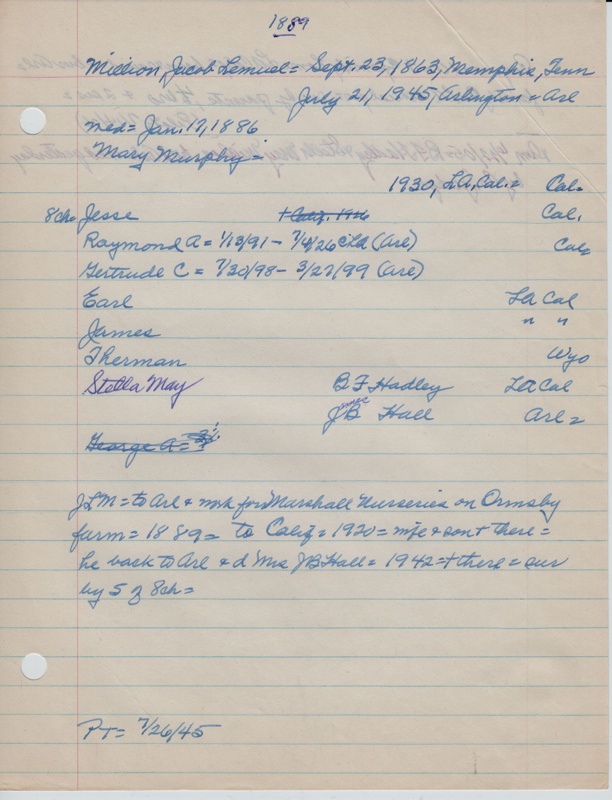 1889
Million, Jacob Lemuel = Sept. 23, 1863, Memphis, Tenn
July 21, 1945, Arlington = Arl
med = Jan. 17, 1886
Mary Murphy =
1930, LA, Cal. = Cal =
8ch = Jesse † Calif. 1926 Cal.
Raymond A = 1/13/91 - 7/4/26 (Arl) Cal =
Gertrude C = 7/30/98 - 3/27/99 (Arl)
Earl LA Cal
James " "
Therman Wyo
Stella May B F Hadley LA Cal
James B Hall Arl =
George A =
JLM = to Arl & wrk for Marshall Nurseries on Ormsby
farm = 1889 = to Calif = 1920 = wife & son † there =
he back to Arl & d Mrs JB Hall = 1942 = † there = sur
by 5 of 8ch =
PT = 7/26/45